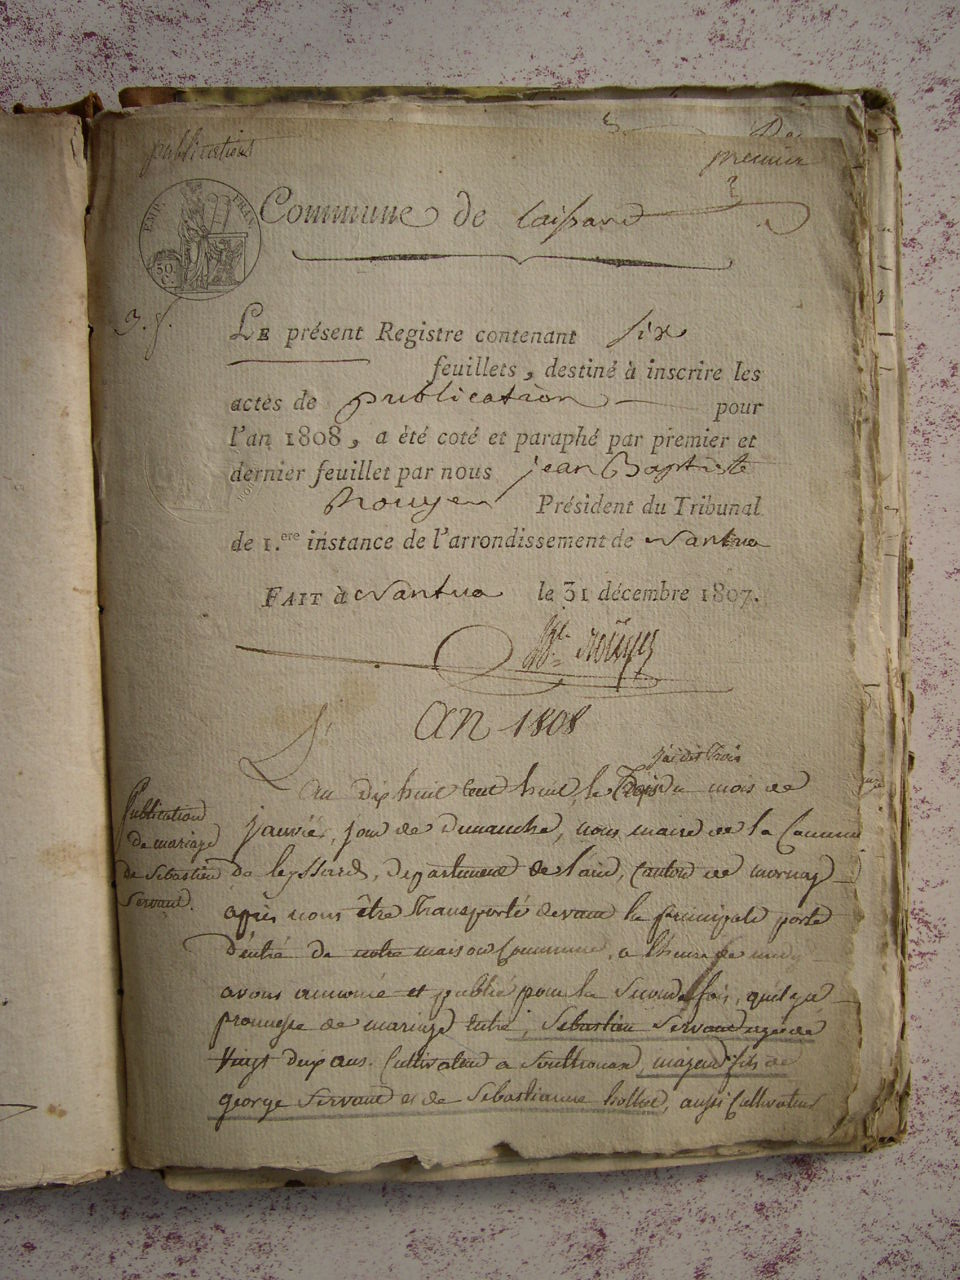 publications
premier
EMP. FRAN.
50 C.
Commune de Laissard
LE présent Registre contenant six
feuillets, destiné à inscrire les
actes de publication pour
l'an 1808, a été coté et paraphé par premier et
dernier feuillet par nous jean Baptiste
Rouyer Président du Tribunal
de 1.ere instance de l'arrondissement de Nantua
FAIT à Nantua le 31 décembre 1807.
Bte. Roüyer
An 1808
L'an dix huit cent huit, le Trois du mois de
Publication
de mariage
de Sebastien
Servant.
janvier, jour de dimanche, nous maire de la Commune
de leyssard, departement de l'ain, canton de mornay
après nous être transporté devant la principale porte
d'entré de notre maison Commune, a l'heure de midy
avons annoncé et publié pour la seconde fois, qu'il y a
promesse de mariage entre, Sebastien Servant agé de
vingt deux ans. Cultivateur a majeur fils de
george Servant et de Sebastianne, aussi Cultivateurs